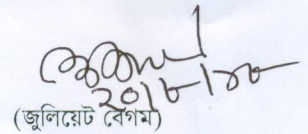 ২০।৮।১৮
(জুলিয়েট বেগম)